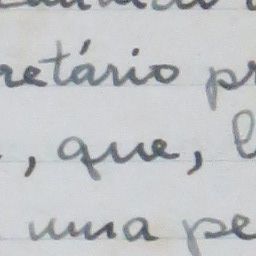 retário pr
, que, l
uma pe